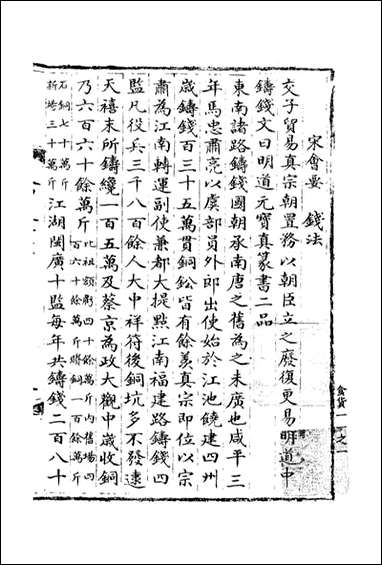 宋會要 錢法
交子貿易真宗朝置務以朝臣立之廢復更易明道中
鑄錢文曰明道元寶真篆書二品
東南諸路鑄錢國朝承南唐之舊為之未廣也咸平三
年馬忠肅亮以虞部員外郎出使始於江池饒建四州
歲鑄錢百三十五萬貫銅鈆皆有餘羨真宗即位以宗
肅為江南轉運副使兼都大提點江南福建路鑄錢四
監凡役兵三千八百餘人大中祥符後銅坑多不發逮
天禧末所鑄纔一百五萬及蔡京為政大觀中歲收銅
乃六百六十餘萬斤比祖額虧四十餘萬斤內舊場四百六十餘萬斤膽銅一百餘萬斤
石銅七十萬斤新場三十萬斤江湖閩廣十監每年共鑄錢二百八十
食貨一